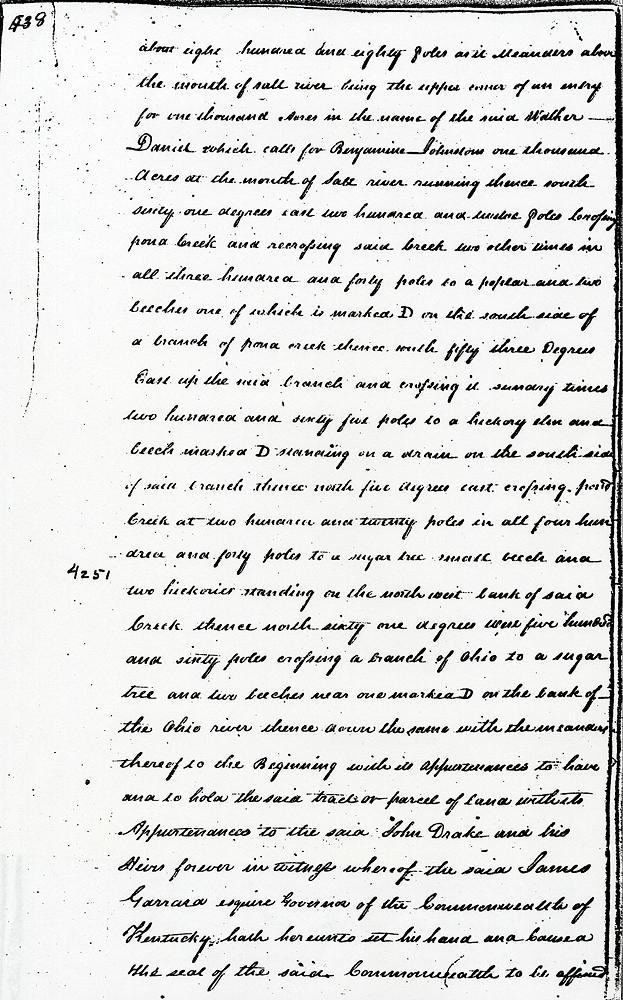 438
about eight hundred and eighty poles as it Meanders above
the mouth of salt river being the upper corner of an entry
for one thousand Acres in the name of the said Walker
Daniel which calls for Benjamine Johnstons one thousand
Acres at the mouth of Salt river running thence south
sixty one degrees east two hundred and twelve poles crossing
pond Creek and recrossing said Creek two other times in
all three hundred and forty poles to a poplar and two
beeches one of which is marked D on the south side of
a branch of pond creek thence south fifty three Degrees
East up the said branch and crossing it sundry times
two hundred and sixty five poles to a hickory elm and
beech marked D standing on a drain on the south side
of said branch thence north five degrees east crossing pond
Creek at two hundred and twenty poles in all four hun
dred and forty poles to a sugar tree small beech and
4251
two hickories standing on the north west bank of said
Creek thence north sixty one degrees west five hundred
and sixty poles crossing a branch of Ohio to a sugar
tree and two beeches near one marked D on the bank of
the Ohio river thence down the same with the meanders
thereof to the Beginning with its Appurtenances to have
and to hold the said tract or parcel of land with its
Appurtenances to the said John Drake and his
Heirs forever in witness whereof the said James
Garrard esquire Governor of the Commonwealth of
Kentucky hath hereunto set his hand and caused
the seal of the said Commonwealth to be affixed